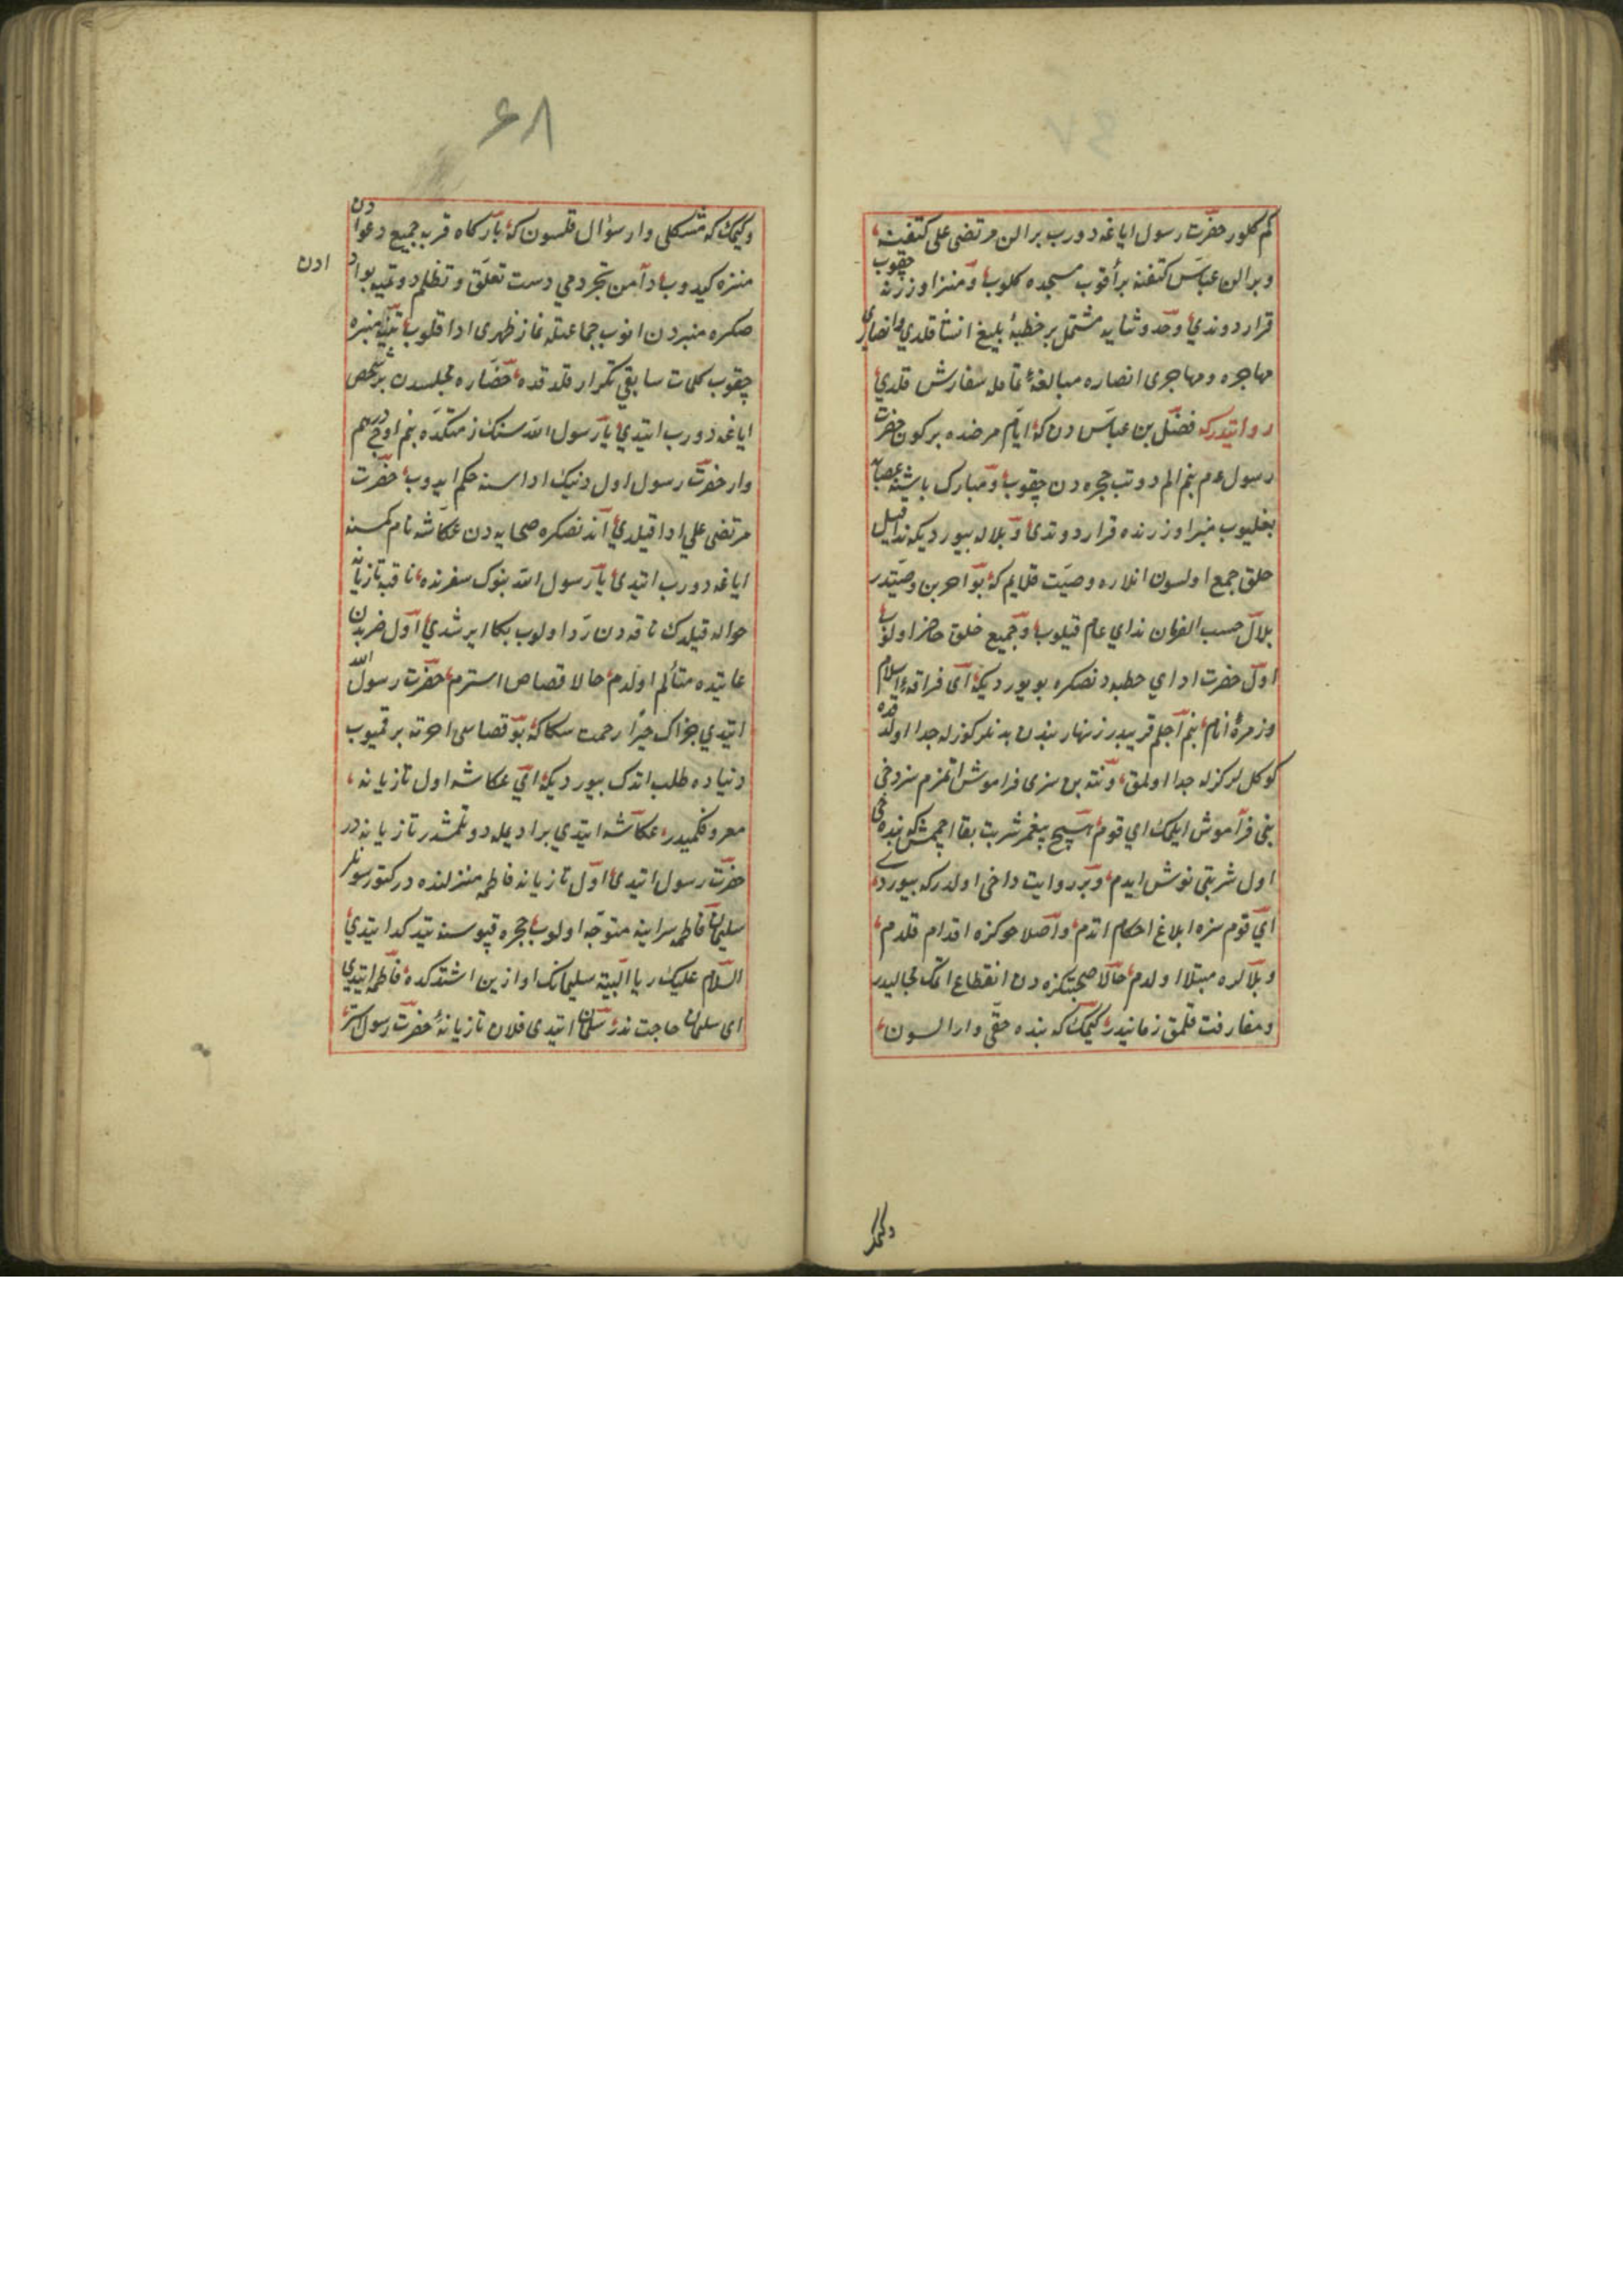 كم كلور حضرت رسول اياغه دورب بر الن مرتضى على كتفنه
وبر الن عباس كتفنه برأقوب مسجده كلوب ومنبر اوزرنه چقوب
قرار دوندي وحمد وثنايه مشتمل بر خطبهٔ بليغ انشا قلدي وانصارى
مهاجره ومهاجرى انصاره مبالغهٔ تامله سفارش قلدي
روايتدركه فضل بن عباس دن كه ايام مرضده بر كون حضرت
رسول عم بنم الم دوتب حجره دن چقوب ومبارك باشنه عصابه
بغليوب منبر اوزرنده قرار دوتدى وبلاله بيورديكه ندا قيل
خلق جمع اولسون انلاره وصيت قلايم كه بو آخرين وصيتدر
بلال حسب الفرمان نداي عام قيلوب وجميع خلق حاضر اولوب
اول حضرت اداي خطبه دنصكره بويورديكه اى فراقهٔ اسلام
وزمرهٔ انام بنم اجلم قريبدر زنهار بندن بدنلر كوزله جدا اولدقده
كوكل لر كزله جدا اولمق ونته بن سزى فراموش اتمزم سز دخى
بنى فراموش ايلمك اي قوم هيچ پيغمبر شربت بقا اچمش كه بنده دخى
اول شربتى نوش ايدم وبر روايت داخى اولدركه بيوردى
اي قوم سزه ابلاغ احكام اتدم واصلاحوكزه اقدام قلدم
وبلالره مبتلا اولدم حالا صحبتكزه دن انقطاع اتمك محاليدر
ومفارقت قلمق زمانيدر كيمك كه بنده حقى وار السون
وكيمك
٦٨
وكيمك كه مشكلى وار سؤال قلسون كه باركاه قربه جميع دعوادن
منزه كيدوب دامن تجردمي دست تعلق وتظلم دوتميه بو ادادن
صكره منبردن انوب جماعتله نماز ظهرى ادا قلوب ينه منبره
چقوب كلمات سابقي تكرار قلدقده حضاره مجلسدن بر شخص
اياغه دورب ايتدي يا رسول الله سنك ذمتكده بنم اوچ درهم
وار حضرت رسول اول دنيك اداسنه حكم ايدوب حضرت
مرتضى علي ادا قيلدي اندنصكره صحابه دن عكاشه نام كمسنه
اياغه دورب ايتدى يا رسول الله بنوك سفرنده ناقيه تازيانه
حواله قيلدك ناقه دن رد اولوب بكا ايرشدي اول ضربدن
غايتده متألم اولدم حالا قصاص استرم حضرت رسول الله
ايتدي جزاك خيرا رحمت سكا كه بو قصاصى اخرته برقميوب
دنياده طلب اتدك بيورديكه اي عكاشه اول تازيانه
معروفكميدر عكاشه ايتدي براديمله دوتلمشدر تازيانه در
حضرت رسول ايتدى اول تازيانه فاطمه منزلنده در كتورسونلر
سليمان فاطمه سراينه متوجه اولوب حجره قپوسنه يتدكدا ايتدي
السلام عليك ريا البيته سليمانك اوازين اشتدكده فاطمه ايتدي
اى سلمان حاجت ندر سلمان ايتدى فلان تازيانه حضرت رسول استر